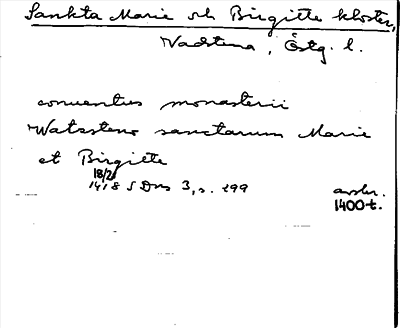 Sankta Marie och Birgitte kloster,
Vadstena, Östg. l.
conventus monasterii
Watzsteno sanctarum Marie
et Birgitte
18/2
1418 SDns 3, s. 299
avskr.
1400-t.